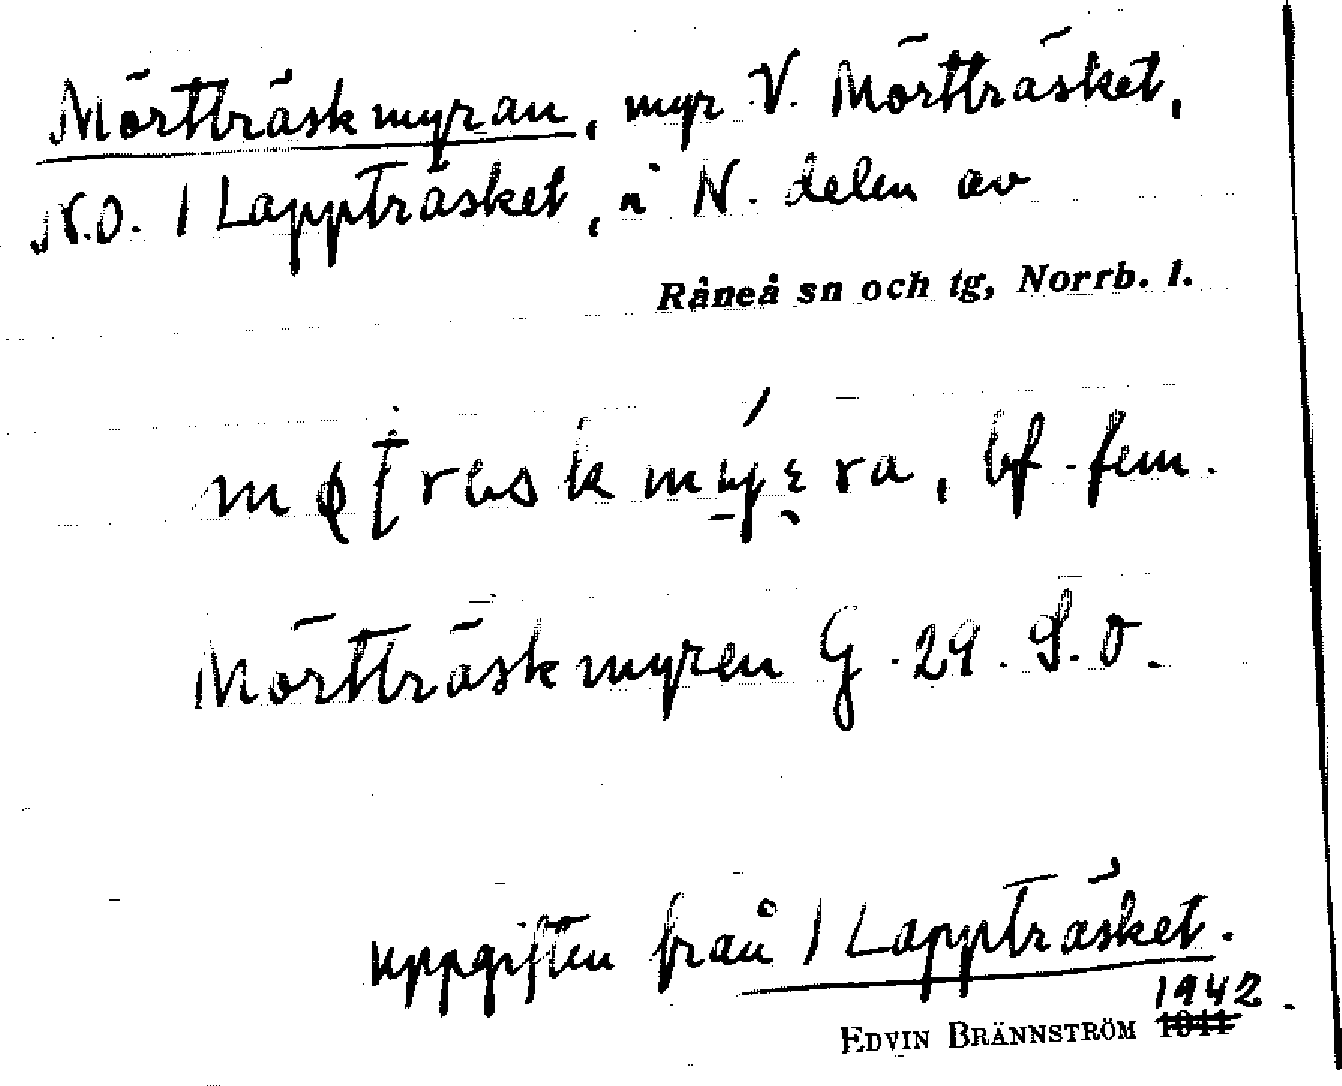 Mörtträskmyran, myr V. Mörtträsket,
N.O. 1 Lappträsket, i N. delen av
Råneå sn och tg, Norrb. l.
bf. fem.
Mörtträskmyren G. 29. S.O.
uppgiften från 1 Lappträsket.
1942
EDVIN BRÄNNSTRÖM 1941